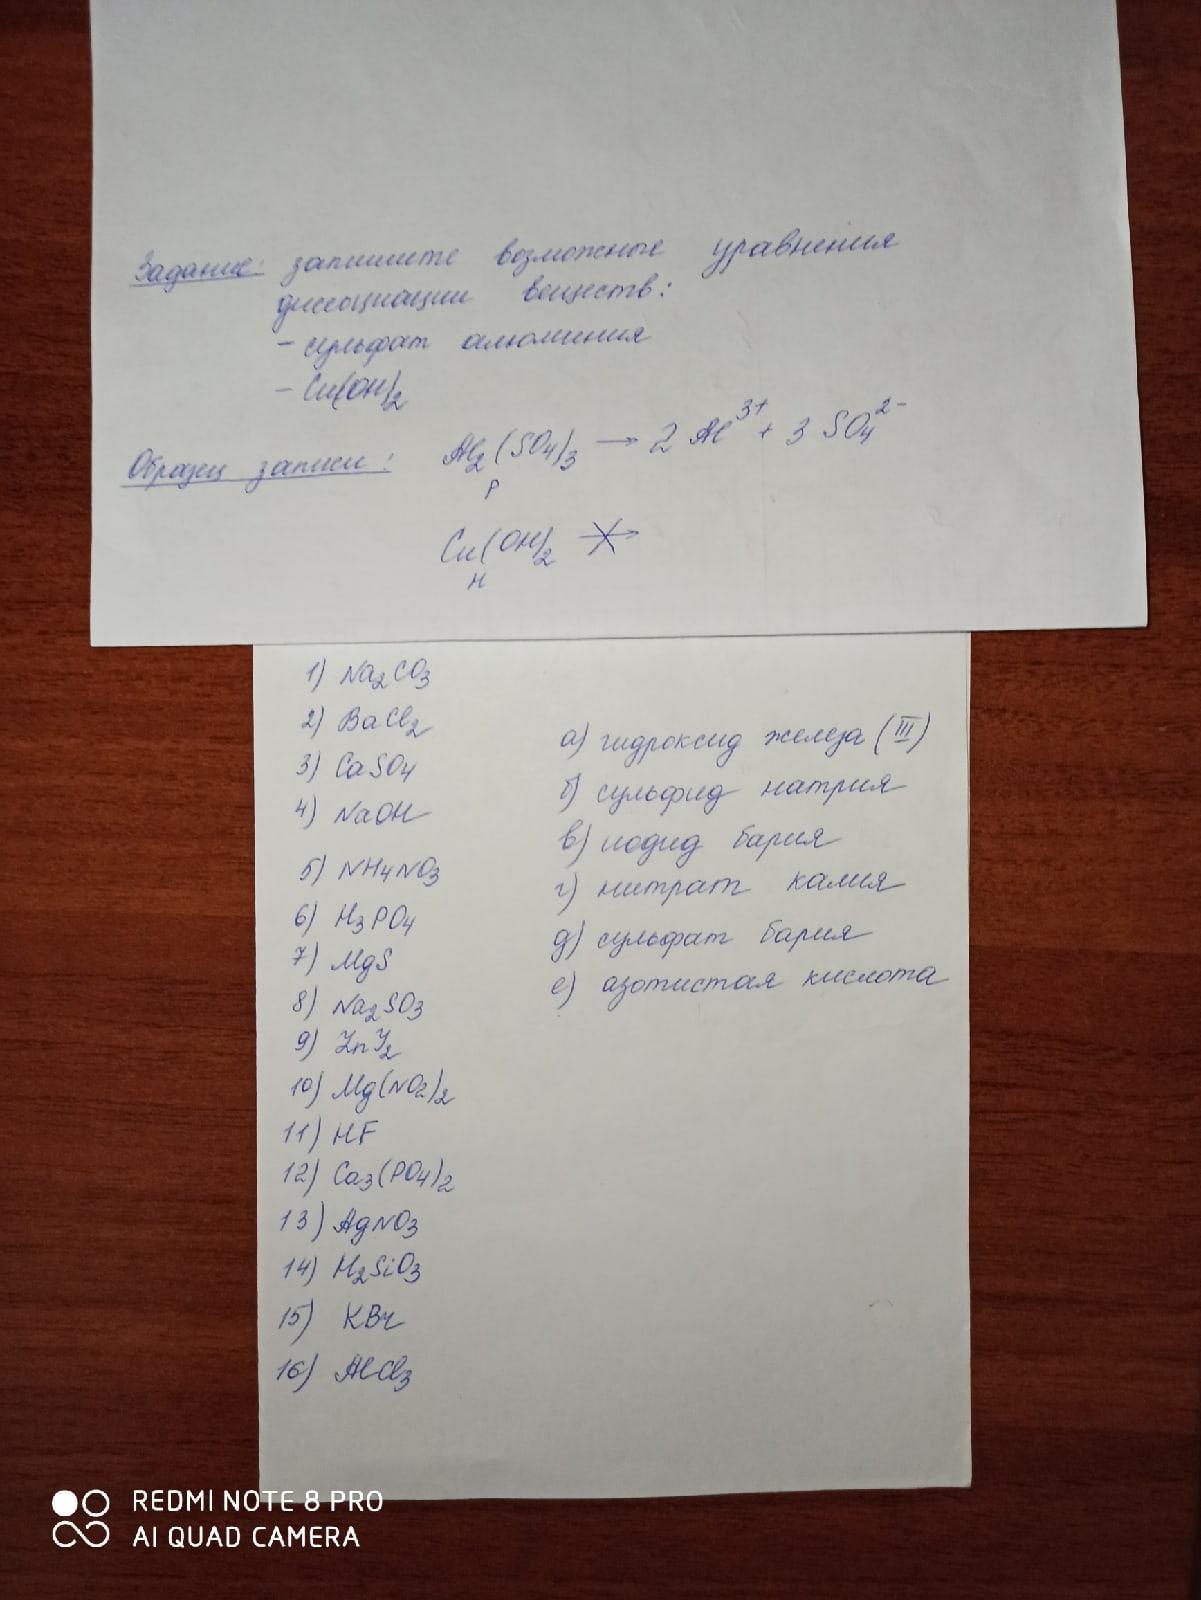 Задание: запишите возможные уравнения
диссоциации веществ:
- сульфат алюминия
- Cu(OH)₂
Образец записи: Al₂(SO₄)₃ → 2 Al³⁺ + 3 SO₄²⁻
р
Cu(OH)₂ ↛
н
1) Na₂CO₃
2) BaCl₂
3) CaSO₄
4) NaOH
5) NH₄NO₃
6) H₃PO₄
7) MgS
8) Na₂SO₃
9) ZnJ₂
10) Mg(NO₂)₂
11) HF
12) Ca₃(PO₄)₂
13) AgNO₃
14) H₂SiO₃
15) KBr
16) AlCl₃
а) гидроксид железа (III)
б) сульфид натрия
в) иодид бария
г) нитрат калия
д) сульфат бария
е) азотистая кислота
REDMI NOTE 8 PRO
AI QUAD CAMERA